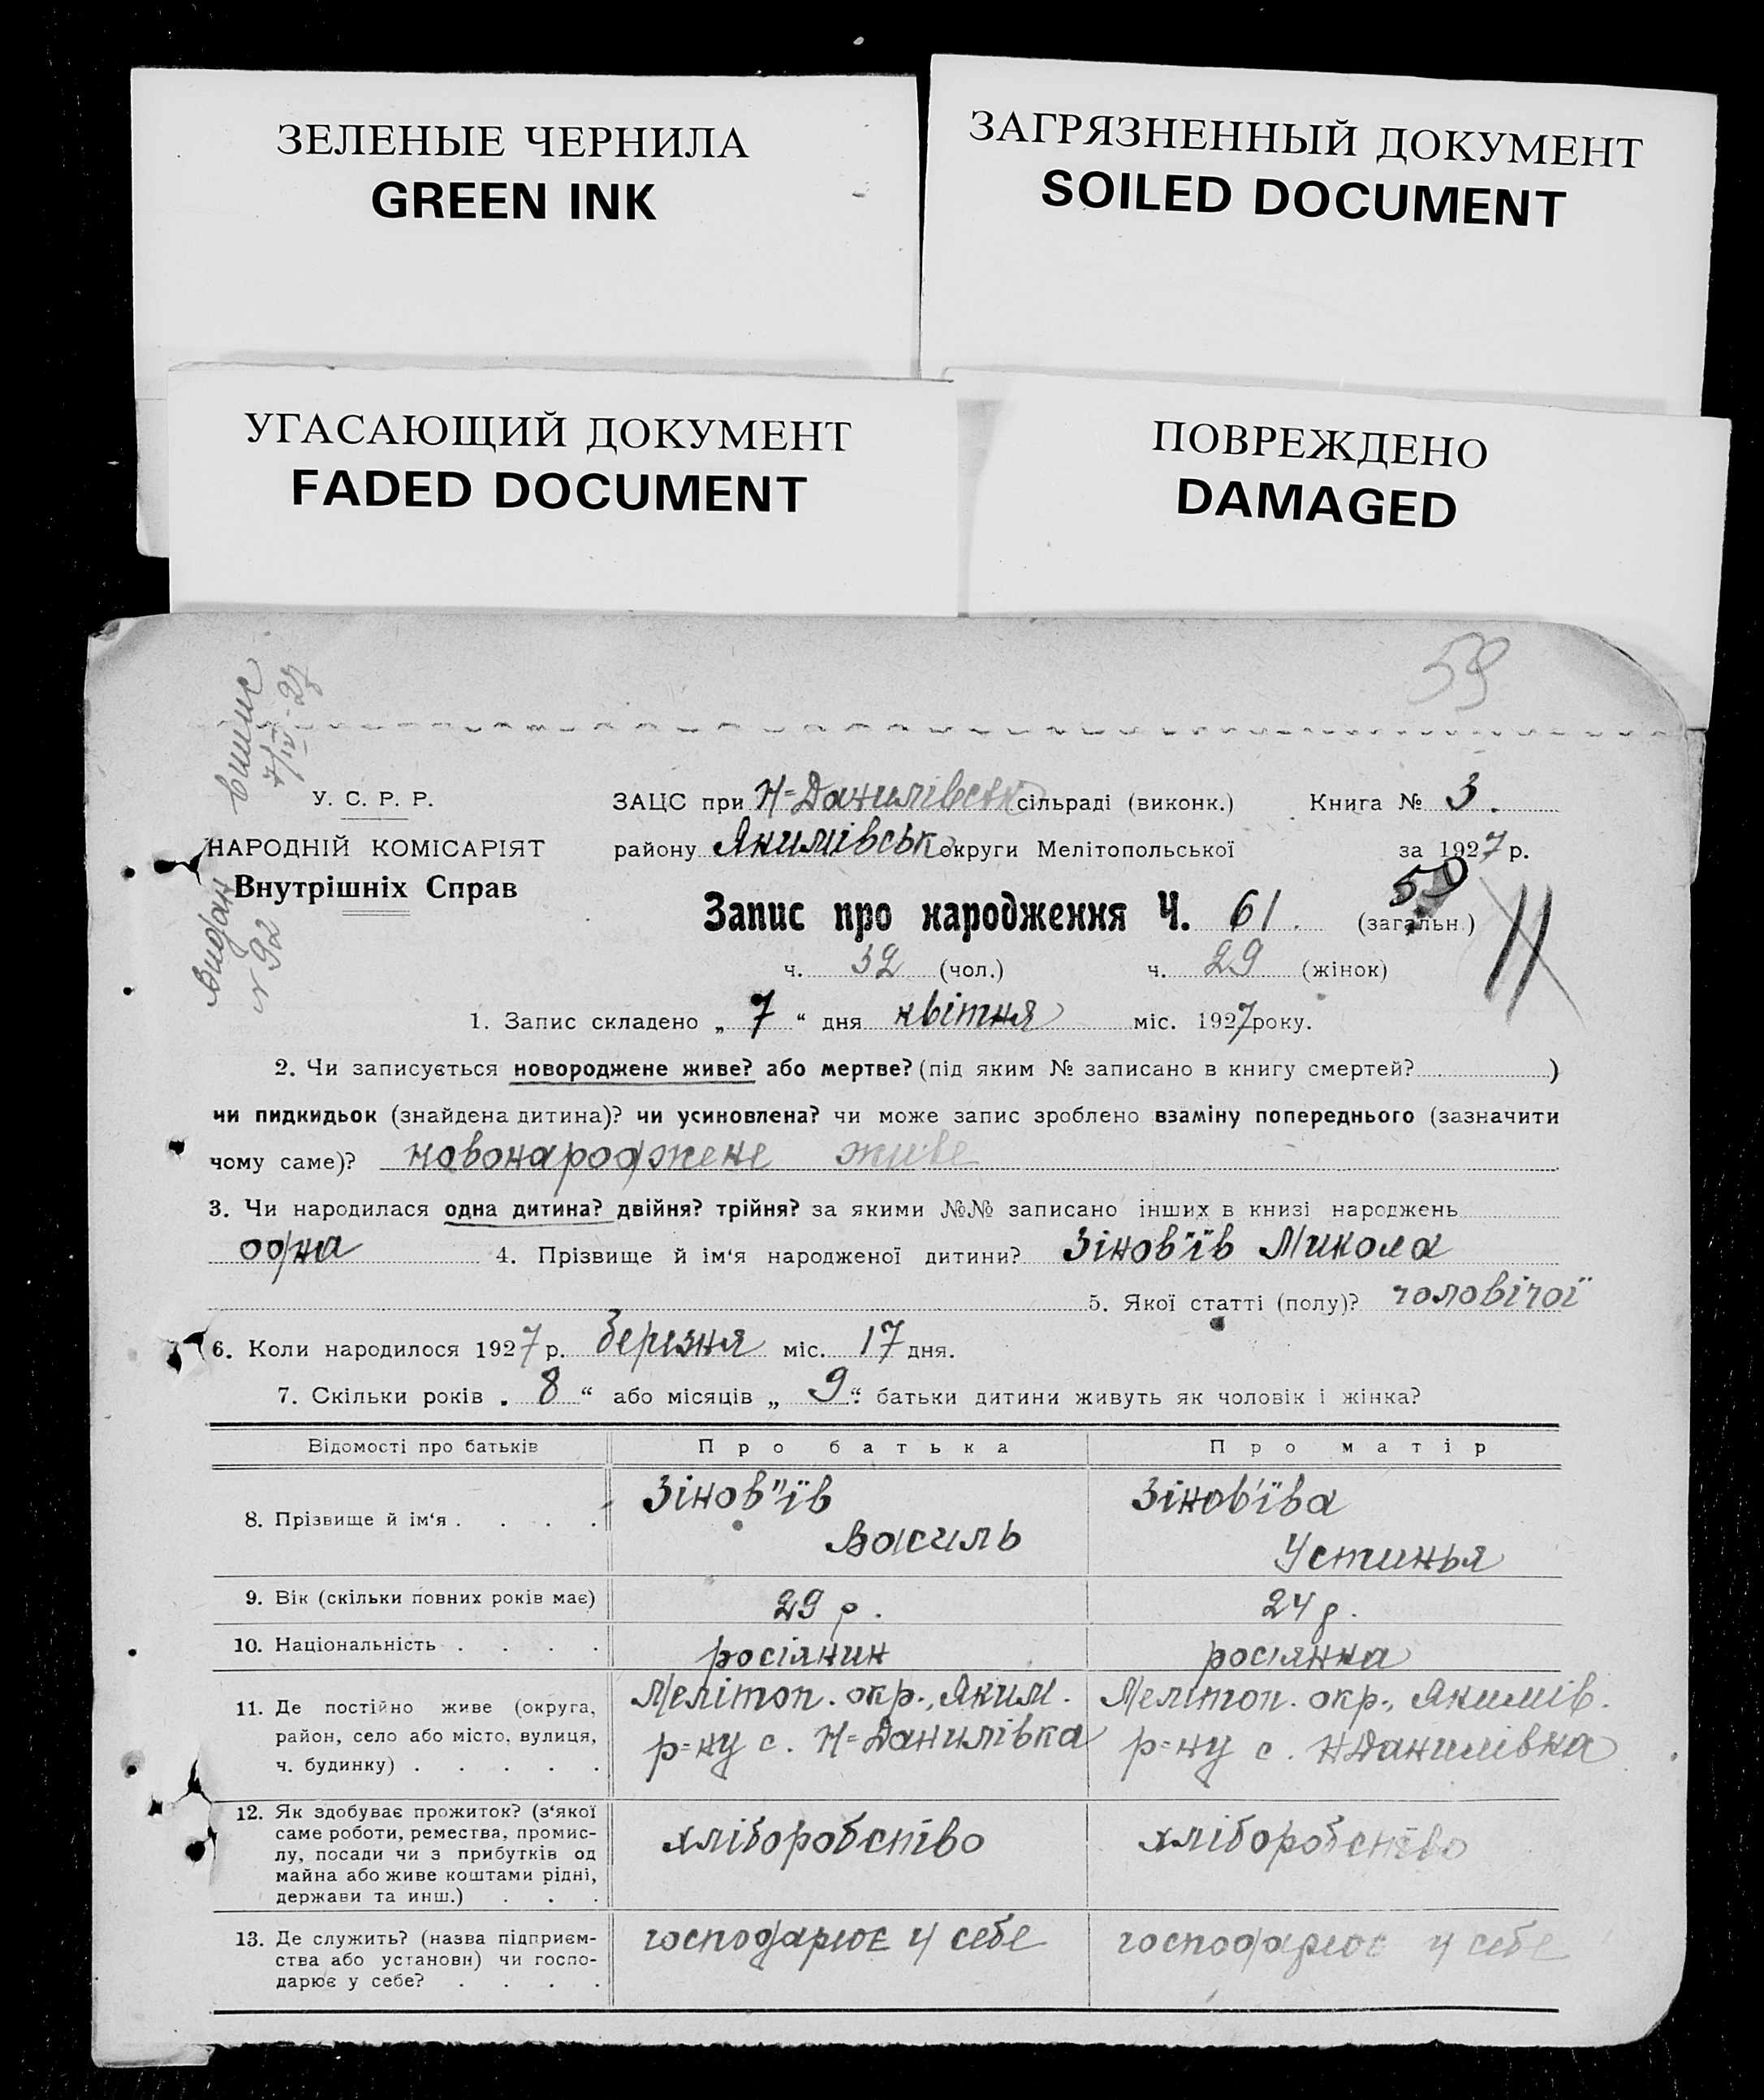 ЗЕЛЕНЫЕ ЧЕРНИЛА
GREEN INK
ЗАГРЯЗНЕННЫЙ ДОКУМЕНТ
SOILED DOCUMENT
УГАСАЮЩИЙ ДОКУМЕНТ
FADED DOCUMENT
ПОВРЕЖДЕНО
DAMAGED
59
випис
7/IV-27
видан
№ 92
У. С. Р. Р.
НАРОДНІЙ КОМІСАРІЯТ
Внутрішніх Справ
ЗАЦС при Н=Данилівськ сільраді (виконк.) Книга № 3.
району Якимівськ округи Мелітопольської за 1927 р.
Запис про народження Ч. 61. 59 (загальн.)
ч. 32 (чол.) ч. 29 (жінок)
1. Запис складено „ 7 “ дня квітня міс. 1927 року.
2. Чи записується новороджене живе? або мертве? (під яким № записано в книгу смертей? )
чи пидкидьок (знайдена дитина)? чи усиновлена? чи може запис зроблено взаміну попереднього (зазначити
чому саме)? новонароджене живе
3. Чи народилася одна дитина? двійня? трійня? за якими №№ записано інших в книзі народжень
одна 4. Прізвище й ім‘я народженої дитини? Зінов"їв Микола
5. Якої статті (полу)? чоловічої
6. Коли народилося 1927 р. березня міс. 17 дня.
7. Скільки років „ 8 “ або місяців „ 9 “ батьки дитини живуть як чоловік і жінка?
Відомості про батьків Про батька Про матір
8. Прізвище й ім‘я . . . . Зінов"їв Василь Зінов'їва Устинья
9. Вік (скільки повних років має) 29 р. 24 р.
10. Національність . . . . росіянин росіянка
11. Де постійно живе (округа, район, село або місто, вулиця, ч. будинку) . . . . .
Мелітоп. окр., Яким. р=ну с. Н=Данилівка
Мелітоп. окр., Якимів. р=ну с. Н Данилівка
12. Як здобуває прожиток? (з‘якої
саме роботи, ремества, промис-
лу, посади чи з прибутків од
майна або живе коштами рідні,
держави та инш.) . . .
хліборобство хліборобство
13. Де служить? (назва підприєм-
ства або установи) чи госпо-
дарює у себе? . . . .
господарює у себе господарює у себе